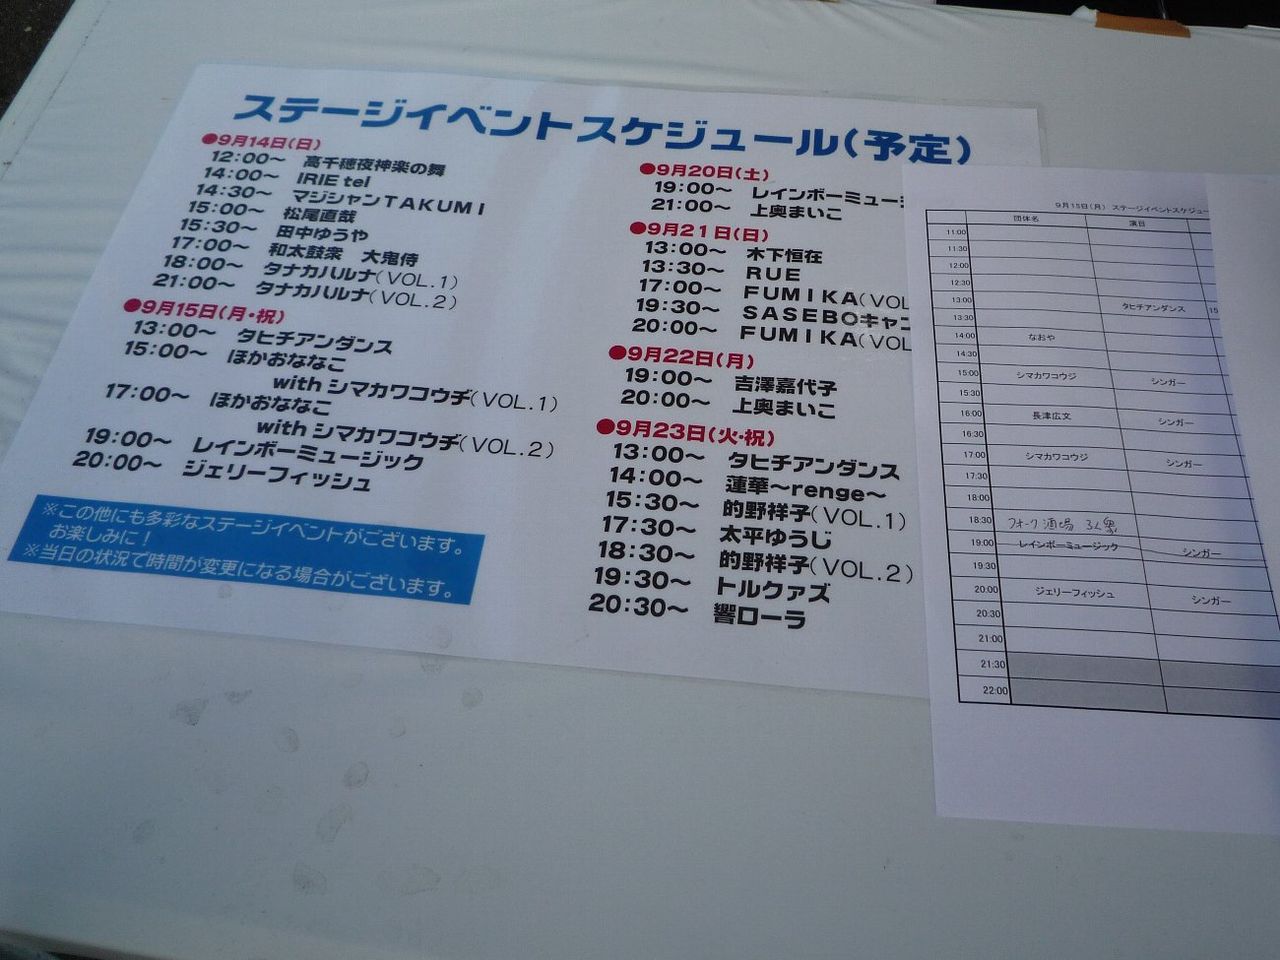 ステージイベントスケジュール(予定)
●9月14日(日)
12:00～ 高千穂夜神楽の舞
14:00～ IRIE tel
14:30～ マジシャンTAKUMI
15:00～ 松尾直哉
15:30～ 田中ゆうや
17:00～ 和太鼓衆 大鬼侍
18:00～ タナカハルナ(VOL.1)
21:00～ タナカハルナ(VOL.2)
●9月15日(月・祝)
13:00～ タヒチアンダンス
15:00～ ほかおななこ
with シマカワコウヂ(VOL.1)
17:00～ ほかおななこ
with シマカワコウヂ(VOL.2)
19:00～ レインボーミュージック
20:00～ ジェリーフィッシュ
※この他にも多彩なステージイベントがございます。
お楽しみに!
※当日の状況で時間が変更になる場合がございます。
●9月20日(土)
19:00～ レインボーミュー
21:00～ 上奥まいこ
●9月21日(日)
13:00～ 木下恒在
13:30～ RUE
17:00～ FUMIKA(VOL
19:30～ SASEBOキャン
20:00～ FUMIKA(VOL
●9月22日(月)
19:00～ 吉澤嘉代子
20:00～ 上奥まいこ
●9月23日(火・祝)
13:00～ タヒチアンダンス
14:00～ 蓮華～renge～
15:30～ 的野祥子(VOL.1)
17:30～ 太平ゆうじ
18:30～ 的野祥子(VOL.2)
19:30～ トルクァズ
20:30～ 響ローラ
9月15日(月) ステージイベントスケジュー
団体名 演目
11:00
11:30
12:00
12:30
13:00 タヒチアンダンス 15
13:30
14:00 なおや
14:30
15:00 シマカワコウジ シンガー
15:30
16:00 長津広文 シンガー
16:30
17:00 シマカワコウジ シンガー
17:30
18:00
18:30 フォーク酒場
19:00 レインボーミュージック シンガー
19:30
20:00 ジェリーフィッシュ シンガー
20:30
21:00
21:30
22:00